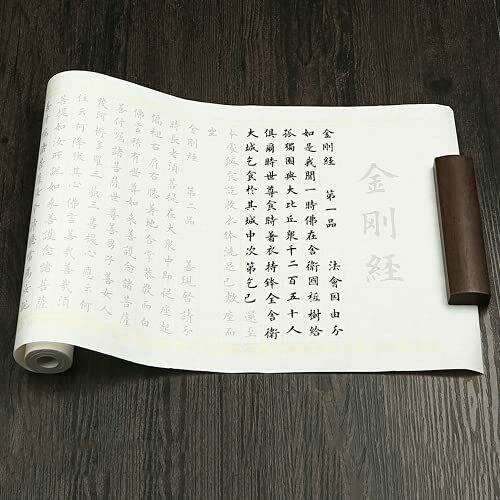 金剛經
金剛經 第一品 法會因由分
如是我聞一時佛在舍衛國祗樹給
孤獨園與大比丘眾千二百五十人
俱爾時世尊食時著衣持鉢入舍衛
大城乞食於其城中次第乞已還至
本處飯食訖收衣鉢洗足已敷座而
坐
金剛經 第二品 善現啟請分
時長老須菩提在大眾中即從座起
偏袒右肩右膝著地合掌恭敬而白
佛言希有世尊如來善護念諸菩薩
善付囑諸菩薩世尊善男子善女人
發阿耨多羅三藐三菩提心應云何
住云何降伏其心佛言善哉善哉須
菩提如汝所說如來善護念諸菩薩